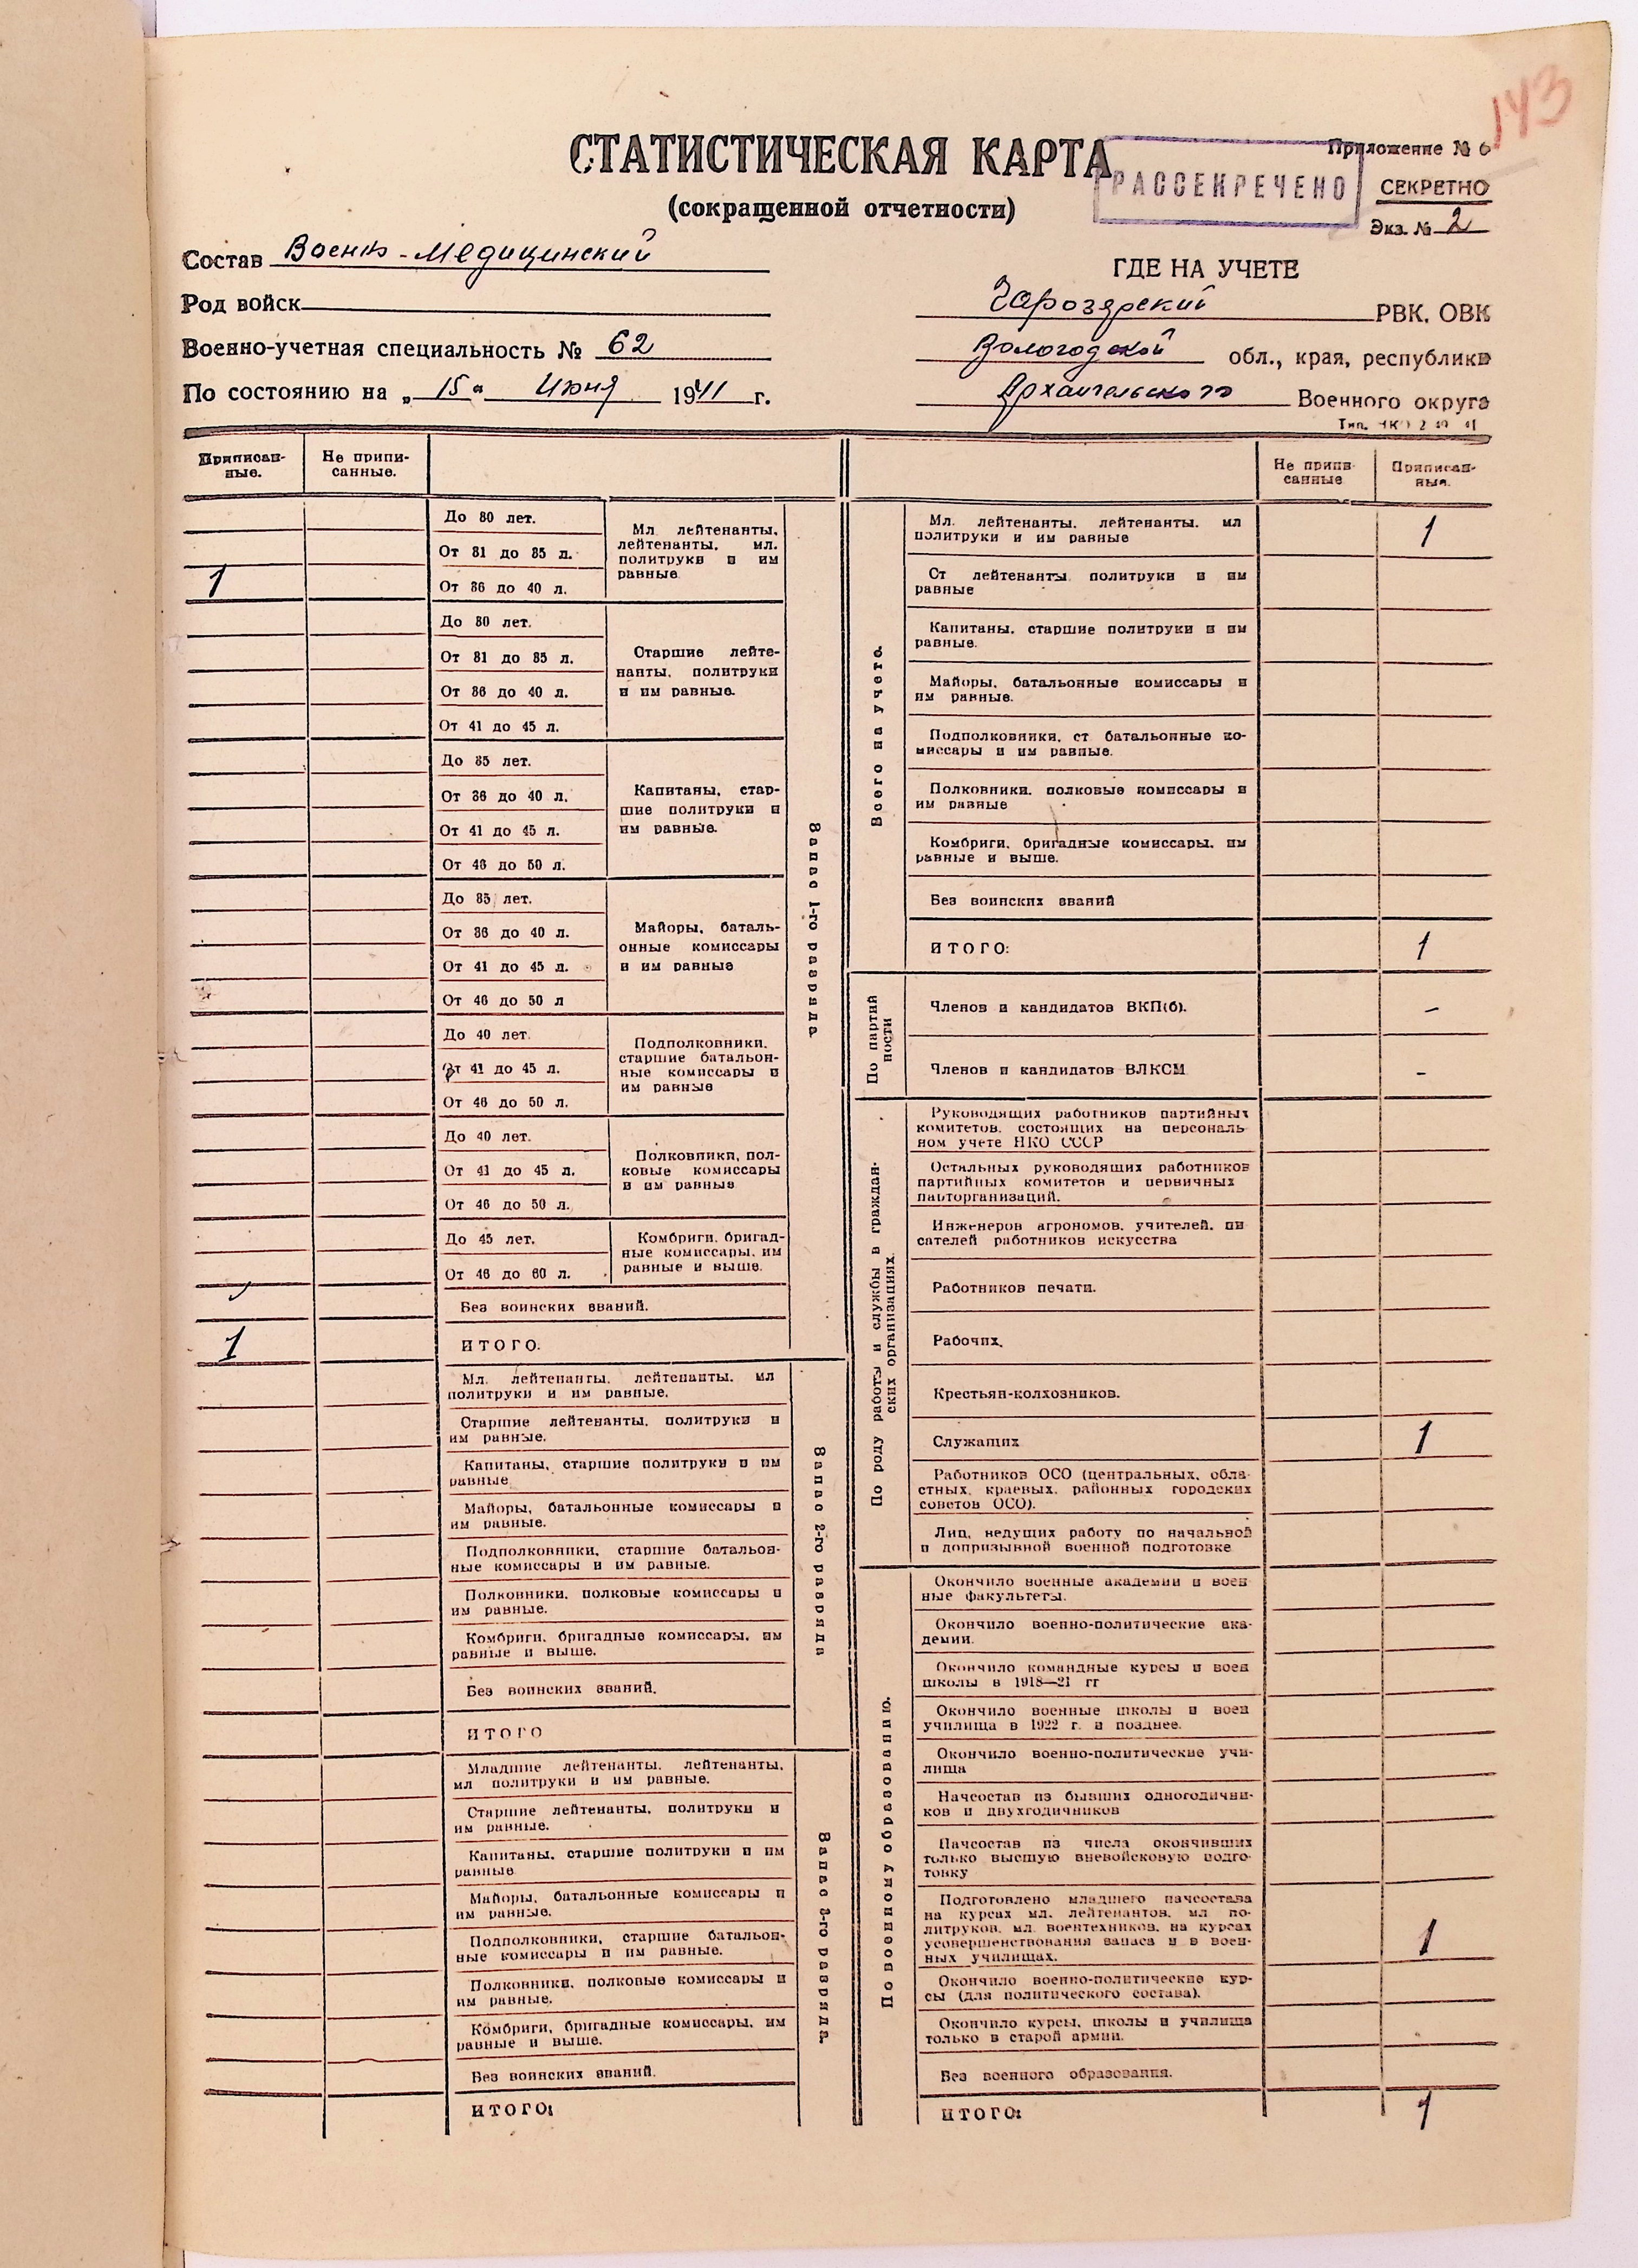 143
СТАТИСТИЧЕСКАЯ КАРТА
(сокращенной отчетности)
Приложение № 6
РАССЕКРЕЧЕНО
СЕКРЕТНО
Экз. № 2
Состав Военно-Медицинский
Род войск
Военно-учетная специальность № 62
По состоянию на „15“ Июня 1941 г.
ГДЕ НА УЧЕТЕ
Чарозярский РВК, ОВК
Вологодской обл., края, республики
Архангельского Военного округа
Приписан-
ные.
Не припи-
санные.
До 30 лет.
От 31 до 35 л.
1
От 36 до 40 л.
Мл. лейтенанты,
лейтенанты, мл.
политруки и им
равные
До 30 лет.
От 31 до 35 л.
От 36 до 40 л.
От 41 до 45 л.
Старшие лейте-
нанты, политруки
и им равные.
До 35 лет.
От 36 до 40 л.
От 41 до 45 л.
От 46 до 50 л.
Капитаны, стар-
шие политруки и
им равные.
До 35 лет.
От 36 до 40 л.
От 41 до 45 л.
От 46 до 50 л
Майоры, баталь-
онные комиссары
и им равные
До 40 лет.
От 41 до 45 л.
От 46 до 50 л.
Подполковники,
старшие батальон-
ные комиссары и
им равные
До 40 лет.
От 41 до 45 л.
От 46 до 50 л.
Полковники, пол-
ковые комиссары
и им равные
До 45 лет.
От 46 до 60 л.
Комбриги, бригад-
ные комиссары, им
равные и выше.
Без воинских званий.
1
ИТОГО:
Запас 1-го разряда.
Мл. лейтенанты, лейтенанты, мл
политруки и им равные.
Старшие лейтенанты, политруки и
им равные.
Капитаны, старшие политруки и им
равные
Майоры, батальонные комиссары и
им равные.
Подполковники, старшие батальон-
ные комиссары и им равные.
Полковники, полковые комиссары и
им равные.
Комбриги, бригадные комиссары, им
равные и выше.
Без воинских званий.
ИТОГО
Запас 2-го разряда
Младшие лейтенанты, лейтенанты,
мл политруки и им равные.
Старшие лейтенанты, политруки и
им равные.
Капитаны, старшие политруки и им
равные
Майоры, батальонные комиссары и
им равные.
Подполковники, старшие батальон-
ные комиссары и им равные.
Полковники, полковые комиссары и
им равные.
Комбриги, бригадные комиссары, им
равные и выше.
Без воинских званий.
ИТОГО:
Запас 3-го разряда.
Не припи-
санные
Приписан-
ные.
Всего на учете.
Мл. лейтенанты, лейтенанты, мл
политруки и им равные
1
Ст лейтенанты политруки и им
равные
Капитаны, старшие политруки и им
равные.
Майоры, батальонные комиссары и
им равные.
Подполковники, ст батальонные ко-
миссары и им равные.
Полковники, полковые комиссары и
им равные
Комбриги, бригадные комиссары, им
равные и выше.
Без воинских званий
ИТОГО:
1
По партий
ности
Членов и кандидатов ВКП(б).
–
Членов и кандидатов ВЛКСМ
–
По роду работы и службы в граждан-
ских организациях.
Руководящих работников партийных
комитетов, состоящих на персональ
ном учете НКО СССР
Остальных руководящих работников
партийных комитетов и первичных
парторганизаций.
Инженеров агрономов, учителей, пи
сателей работников искусства
Работников печати.
Рабочих.
Крестьян-колхозников.
Служащих
1
Работников ОСО (центральных, обла-
стных, краевых, районных городских
советов ОСО).
Лиц, ведущих работу по начальной
и допризывной военной подготовке
По военному образованию.
Окончило военные академии и воен
ные факультеты.
Окончило военно-политические ака-
демии.
Окончило командные курсы и воен
школы в 1918—21 гг
Окончило военные школы и воен
училища в 1922 г. и позднее.
Окончило военно-политические учи-
лища
Начсостав из бывших одногодични-
ков и двухгодичников
Начсостав из числа окончивших
только высшую вневойсковую подго-
товку
Подготовлено младшего начсостава
на курсах мл. лейтенантов, мл по-
литруков, мл. воентехников, на курсах
усовершенствования запаса и в воен-
ных училищах.
1
Окончило военно-политические кур-
сы (для политического состава).
Окончило курсы, школы и училища
только в старой армии.
Без военного образования.
ИТОГО:
1